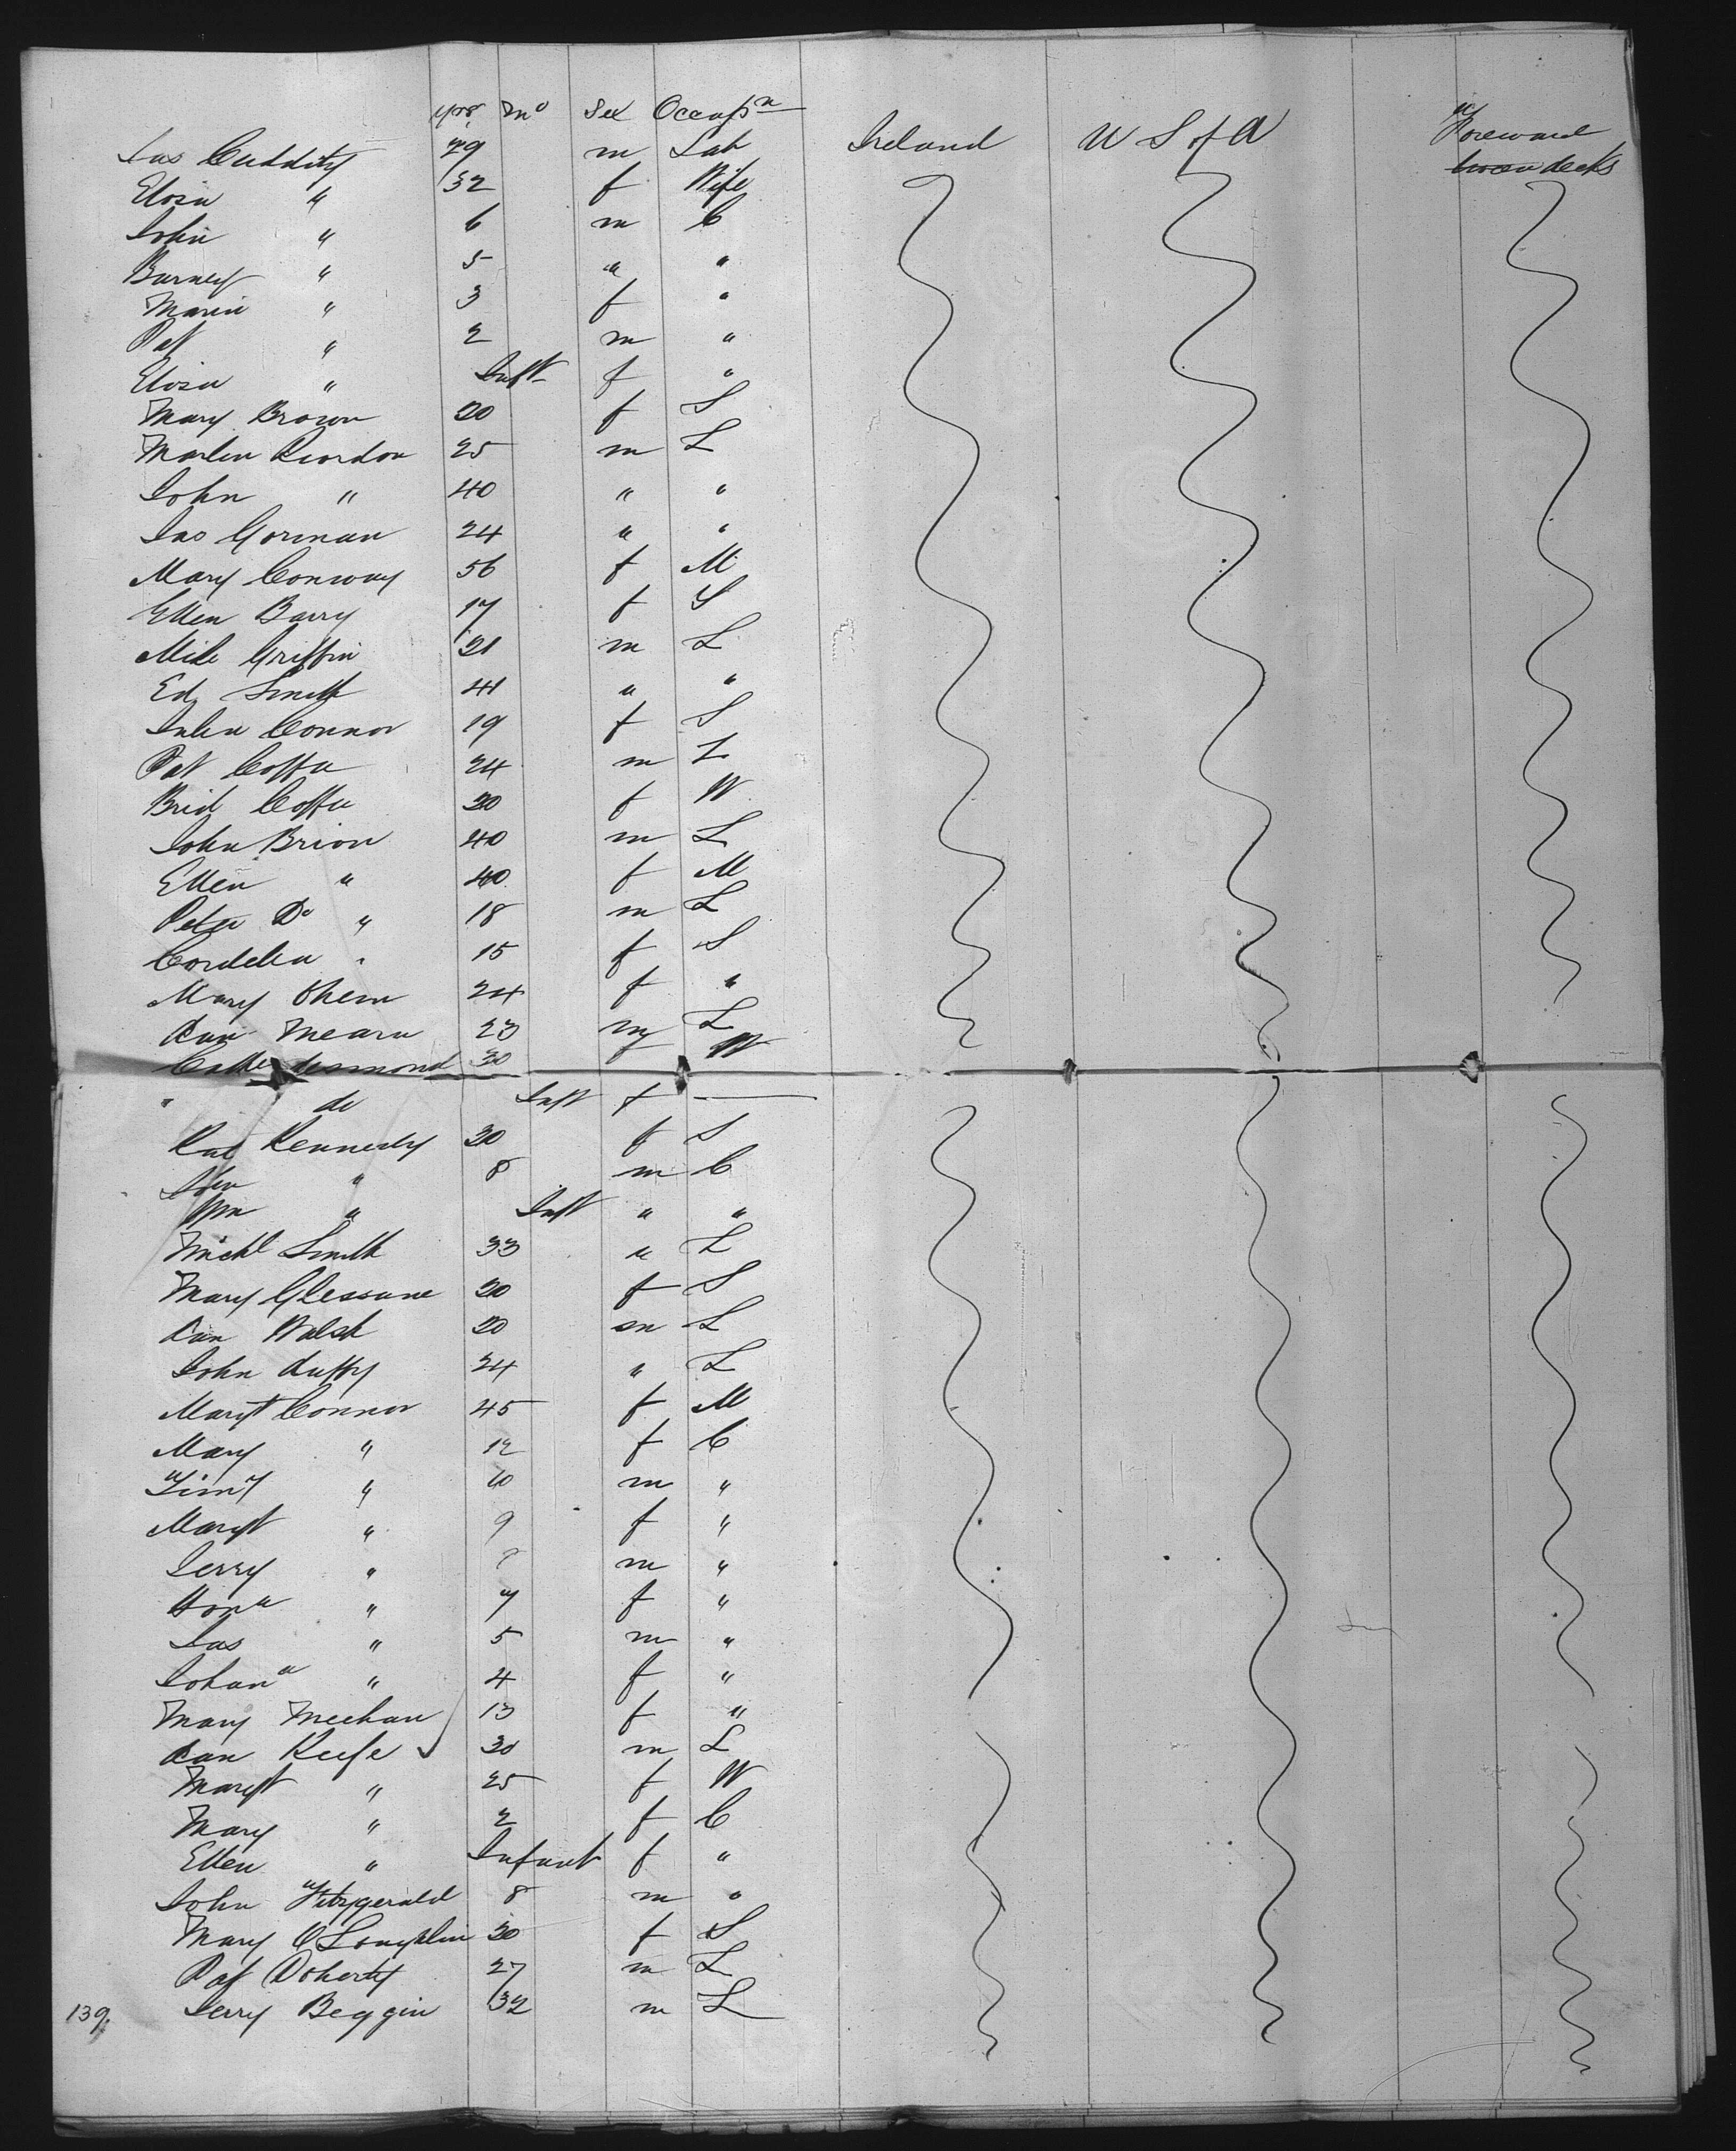 yrs mo Sex Occupn
Jas Cuddity 29 m Lab Ireland U S of A Foreward
Eliza " 32 f Wife decks
John " 6 m C
Barney " 5 " "
Maria " 3 f "
Pat " 2 m "
Eliza " Inft f "
Mary Brown 20 f S
Riordon 25 m L
John " 40 " "
Jas Gorman 24 " "
Mary Conway 56 f M
Ellen Barry 17 f S
Mike Griffin 21 m L
Ed Smith 41 " "
Connor 19 f S
Pat Coffee 24 m L
Brid Coffee 20 f W
John Brion 40 m L
Ellen " 40 f M
Peter Do " 18 m L
Cordelia " 15 f S
Mary 24 f "
Dan Meara 23 m L
Cathe Desmond 30 f W
" do Inft f
Kennedy 30 f S
" 8 m C
Wm " Inft " "
Michl Smith 33 " L
Mary Glessane 20 f S
Dan Walsh 20 m L
John Duffy 24 " L
Margt Connor 45 f M
Mary " 12 f C
Timy " 10 m "
Margt " 9 f "
Jerry " 8 m "
Hona " 7 f "
Jas " 5 m "
Johana " 4 f "
Mary Meehan 13 f "
Dan Keefe 30 m L
Margt " 25 f W
Mary " 2 f C
Ellen " Infant f "
John Fitzgerald 8 m "
Mary O'Loughlin 20 f S
Pat Doherty 27 m L
139. Jerry Beggin 32 m L